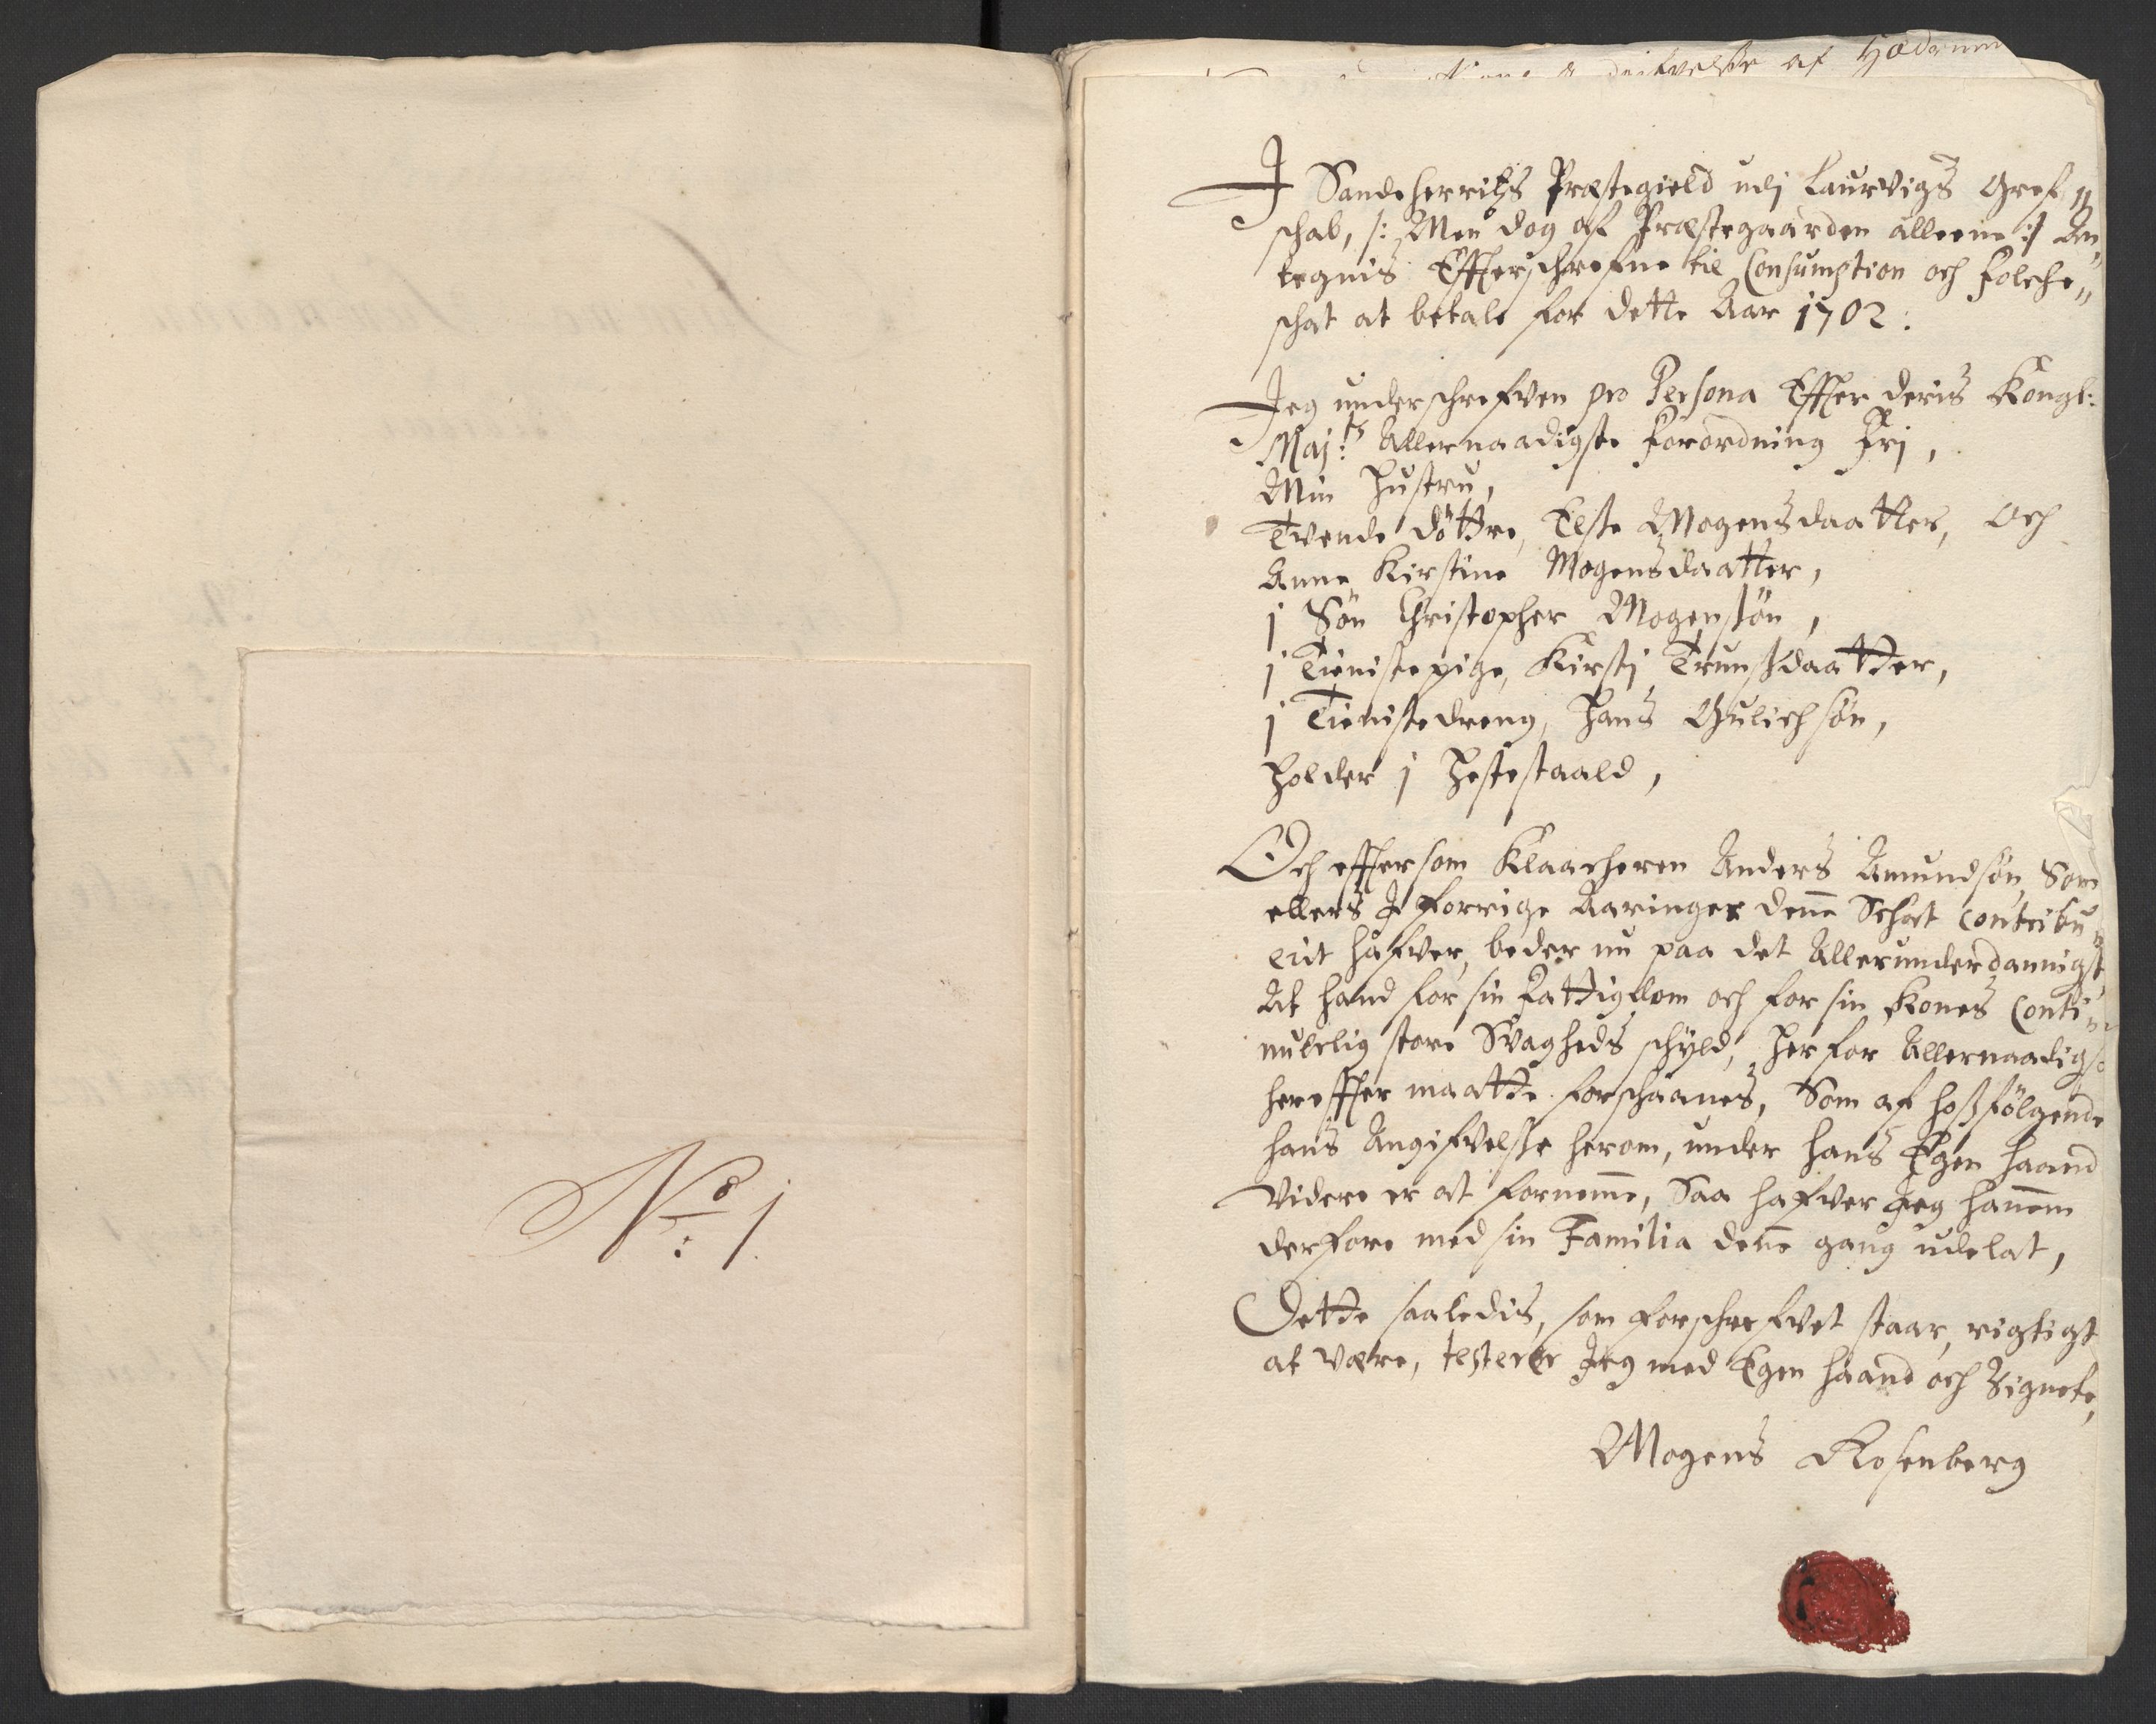 No: 1.
af Hedrum
I Sandeherritz Præstegield udj Laurvigs Gref„
schab, /: Men dog af Præstegaarden alleene :/ An„
tegnis Effterschrefne til Consumption och Folche„
schat at betale for dette Aar 1702:
Jeg underschrefven pro Persona Effter deris Kongl:
Maj:ts Allernaadigste Forordning Frj,
Min Hustru,
Tvende Döttre, Else Mogensdaatter, Och
Anne Kirstine Mogensdaatter,
j Sön Christopher Mogensön,
j Tienistepige, Kirstj Trunsdaatter,
j Tienistedreng, Hans Gulichsön,
Holder j Hestestaald,
Och effter som Klaacheren Anders Amundsön, Som
ellers I forrige Aaringer denne Schat contribu„
erit hafver, beder nu paa det Allerunderdannigst
At hand for sin Fattigdom och for sin Kones Conti„
nuerlig store Svagheds schyld, Herfor Allernaadigst
hereffter maatte forschaanes, Som af hosfölgende
hans Angifvelsse herom, under hans Egen haand
Videre er at fornemme, Saa hafver Jeg hannem
derfore med sin Familia denne gang udelat,
Dette saaledis, som forschrefvet staar, rigtigt
at være, testerer Jeg med Egen haand och Signete,
Mogens Rosenberg